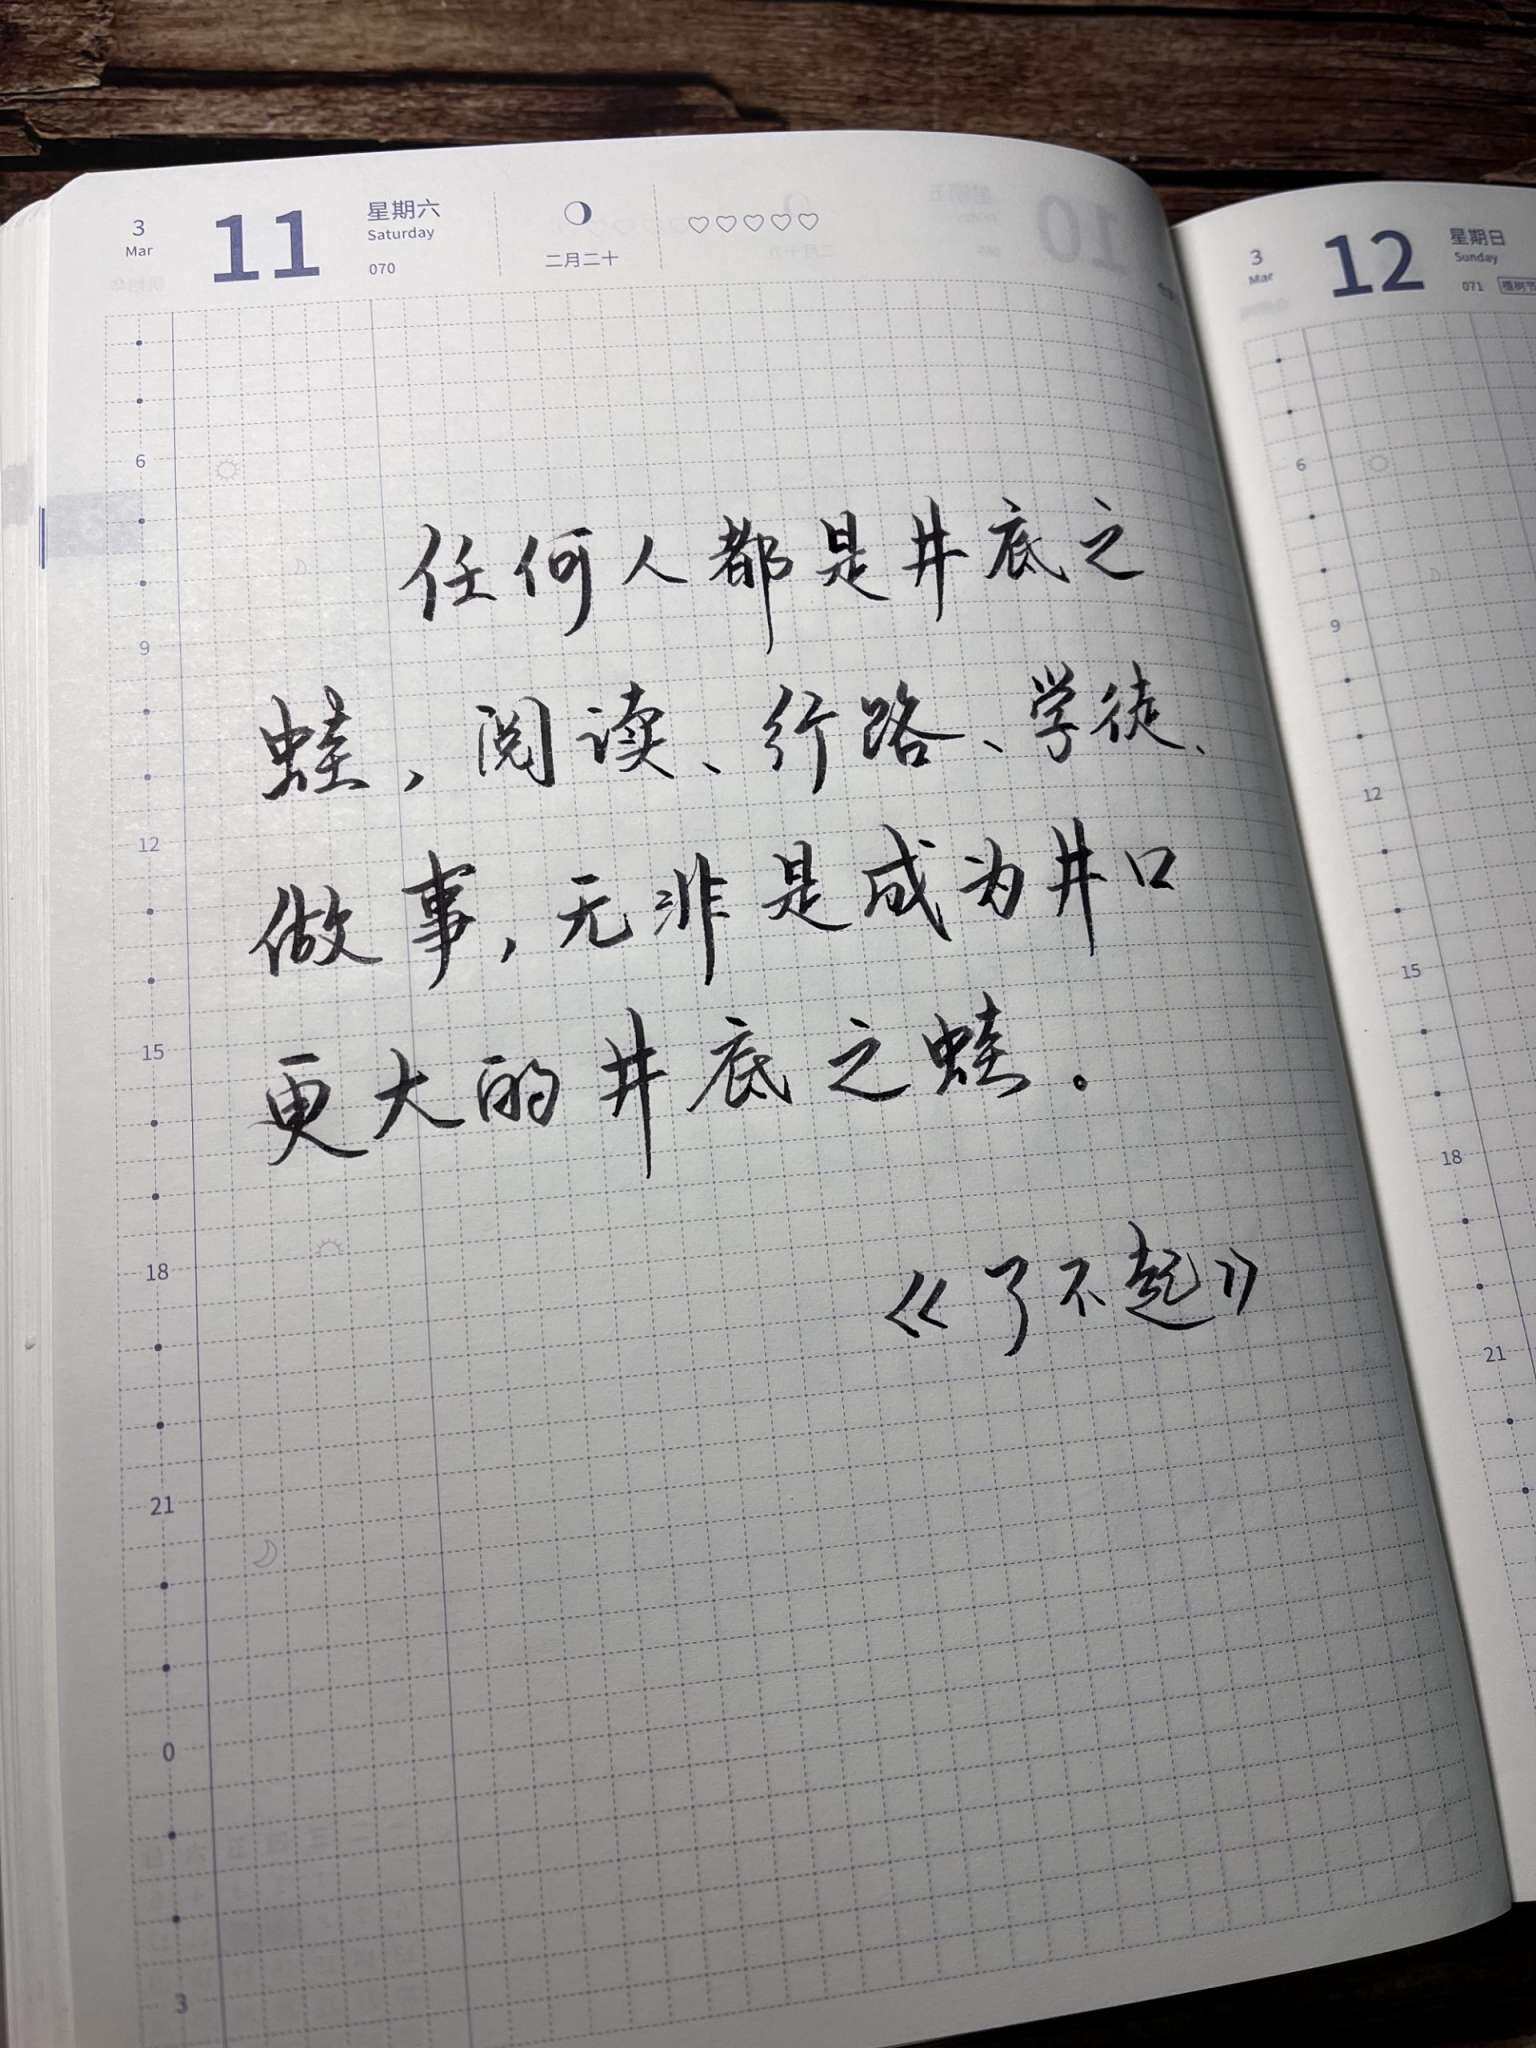 3
Mar
11
星期六
Saturday
070
二月二十
6
9
12
15
18
21
0
3
任何人都是井底之
蛙，阅读、行路、学徒、
做事，无非是成为井口
更大的井底之蛙。
《了不起》
3
Mar
12
星期日
Sunday
071
植树节
6
9
12
15
18
21